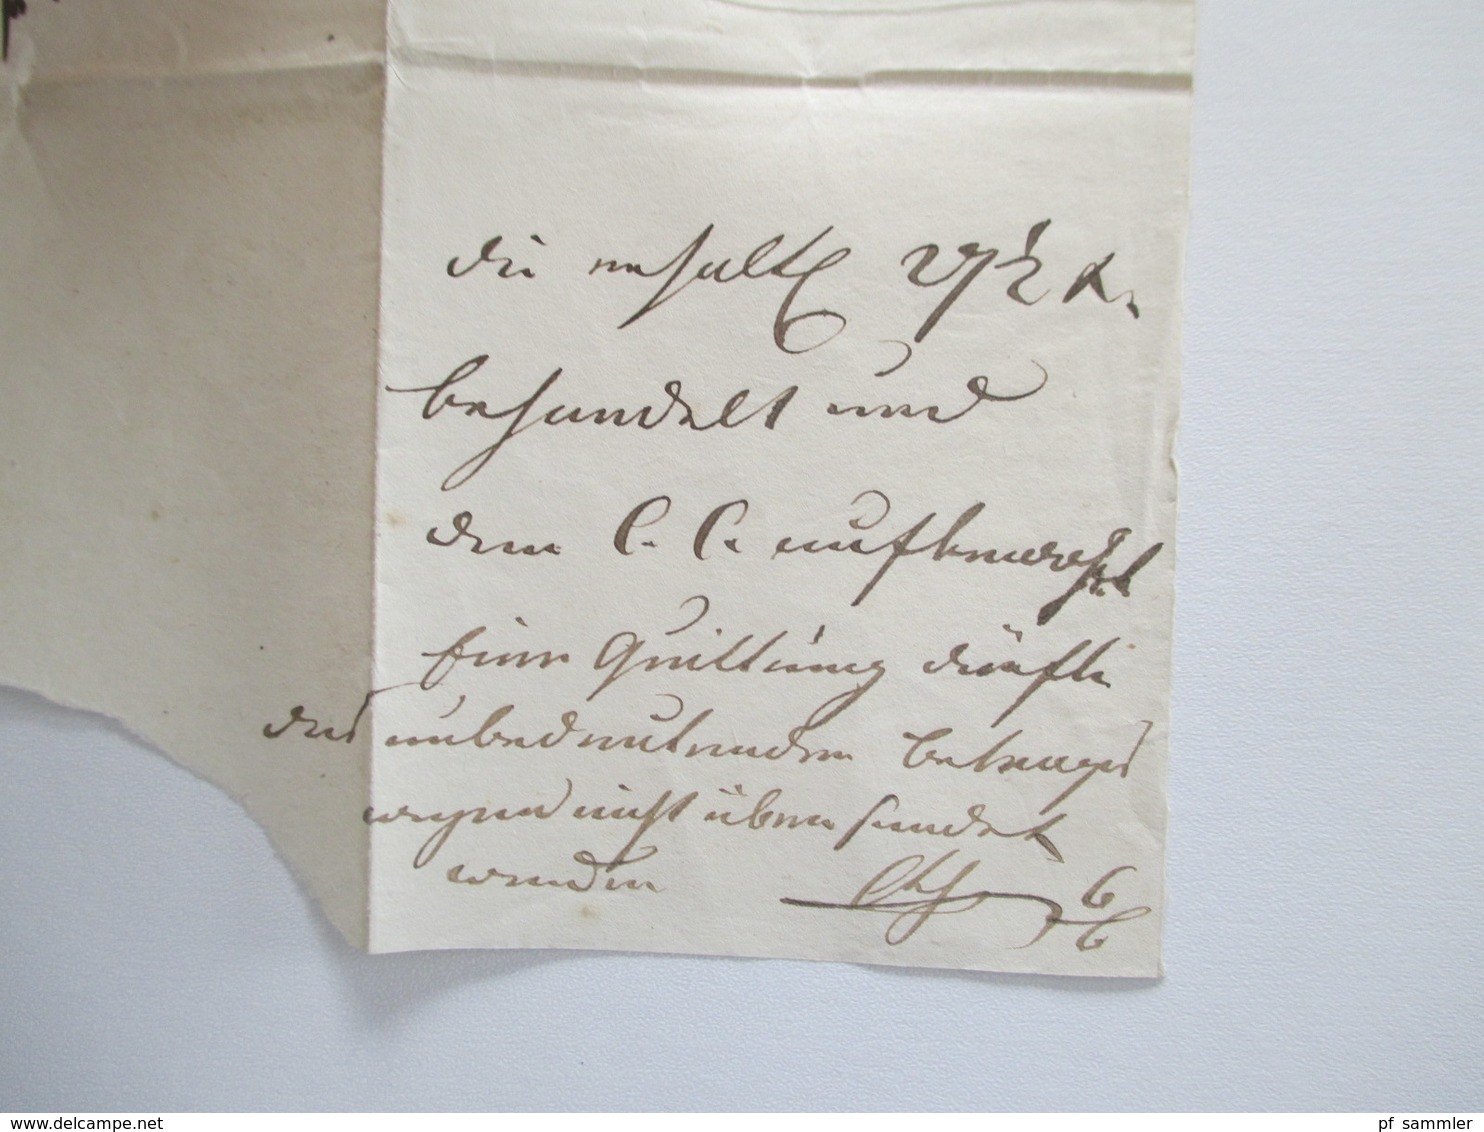 die erhalte 27½ x.
behandelt und
dem C. C. aufbewahrt
Eine Quittung dürfte
des unbedeutenden Betrages
wegen nicht übersendet
werden
6/6
pf sammler